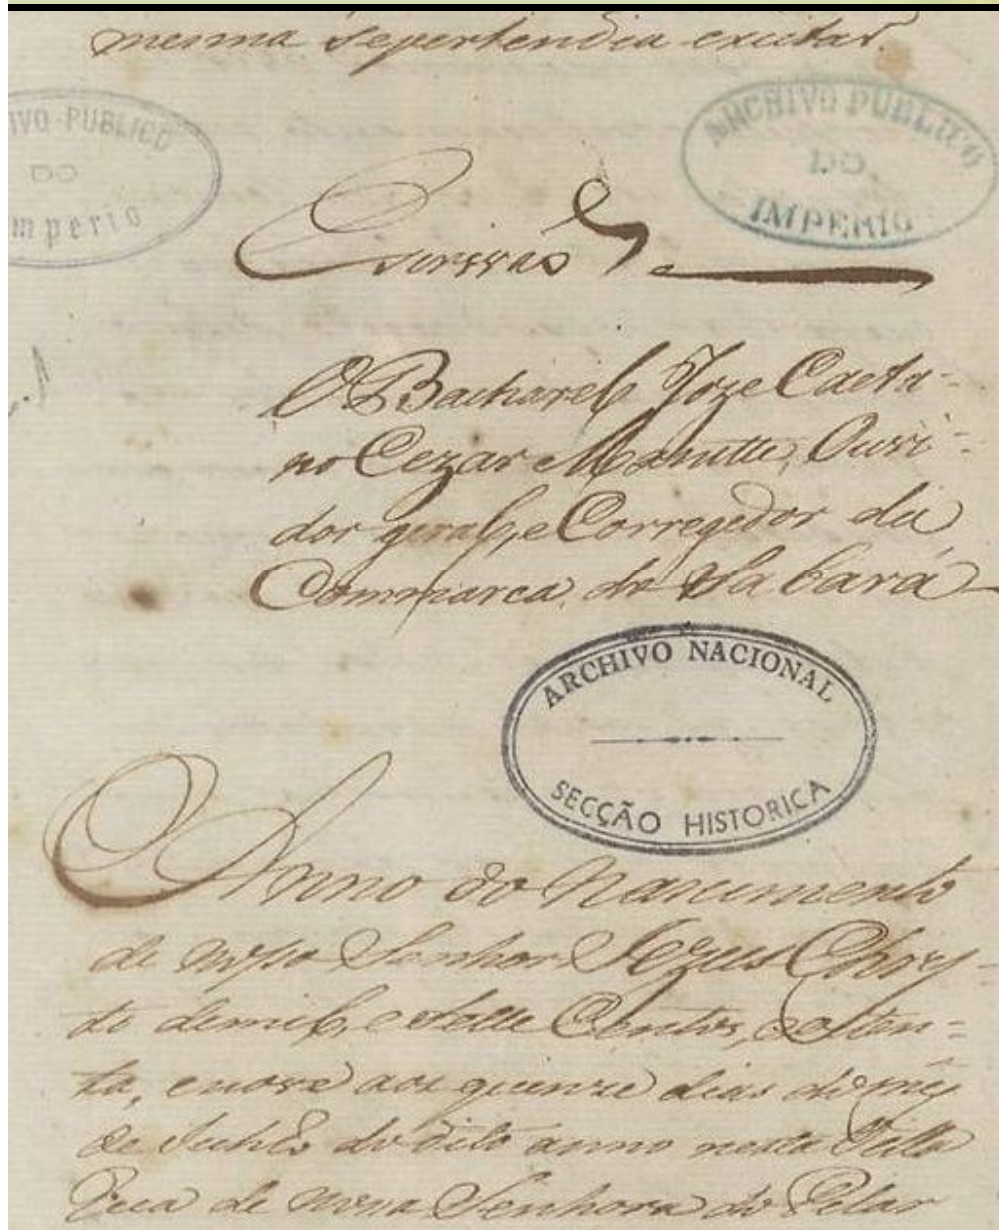 mesma se pertendia exeitar.
IVO PUBLICO
DO
mperio
ARCHIVO PUBLICO
DO.
IMPERIO
Escrivão
O Bacharel Joze Caeta-
no Cezar Manitti, Ouvi-
dor geral, e Corregedor da
Commarca do Sabará
ARCHIVO NACIONAL
SECÇÃO HISTORICA
Anno do Nascimento
de nosso Senhor Jezus Chris-
to de mil, e Sette Centos, e oiten-
ta, e nove aos quinze dias do mes
de Junho do dito anno nesta Villa
Rica de Nossa Senhora do Pilar